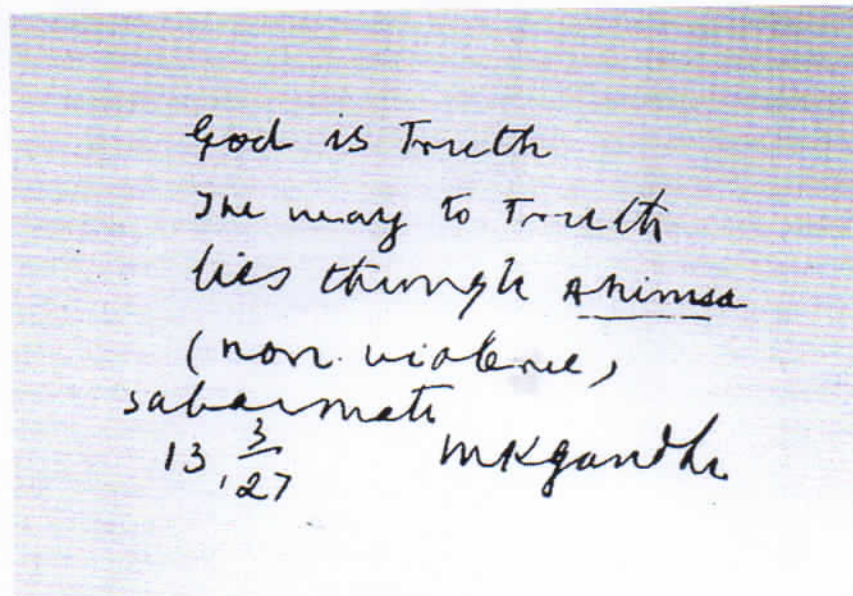 God is Truth
The way to Truth
lies through Ahimsa
(non-violence)
Sabarmati
13 3/27
MKGandhi